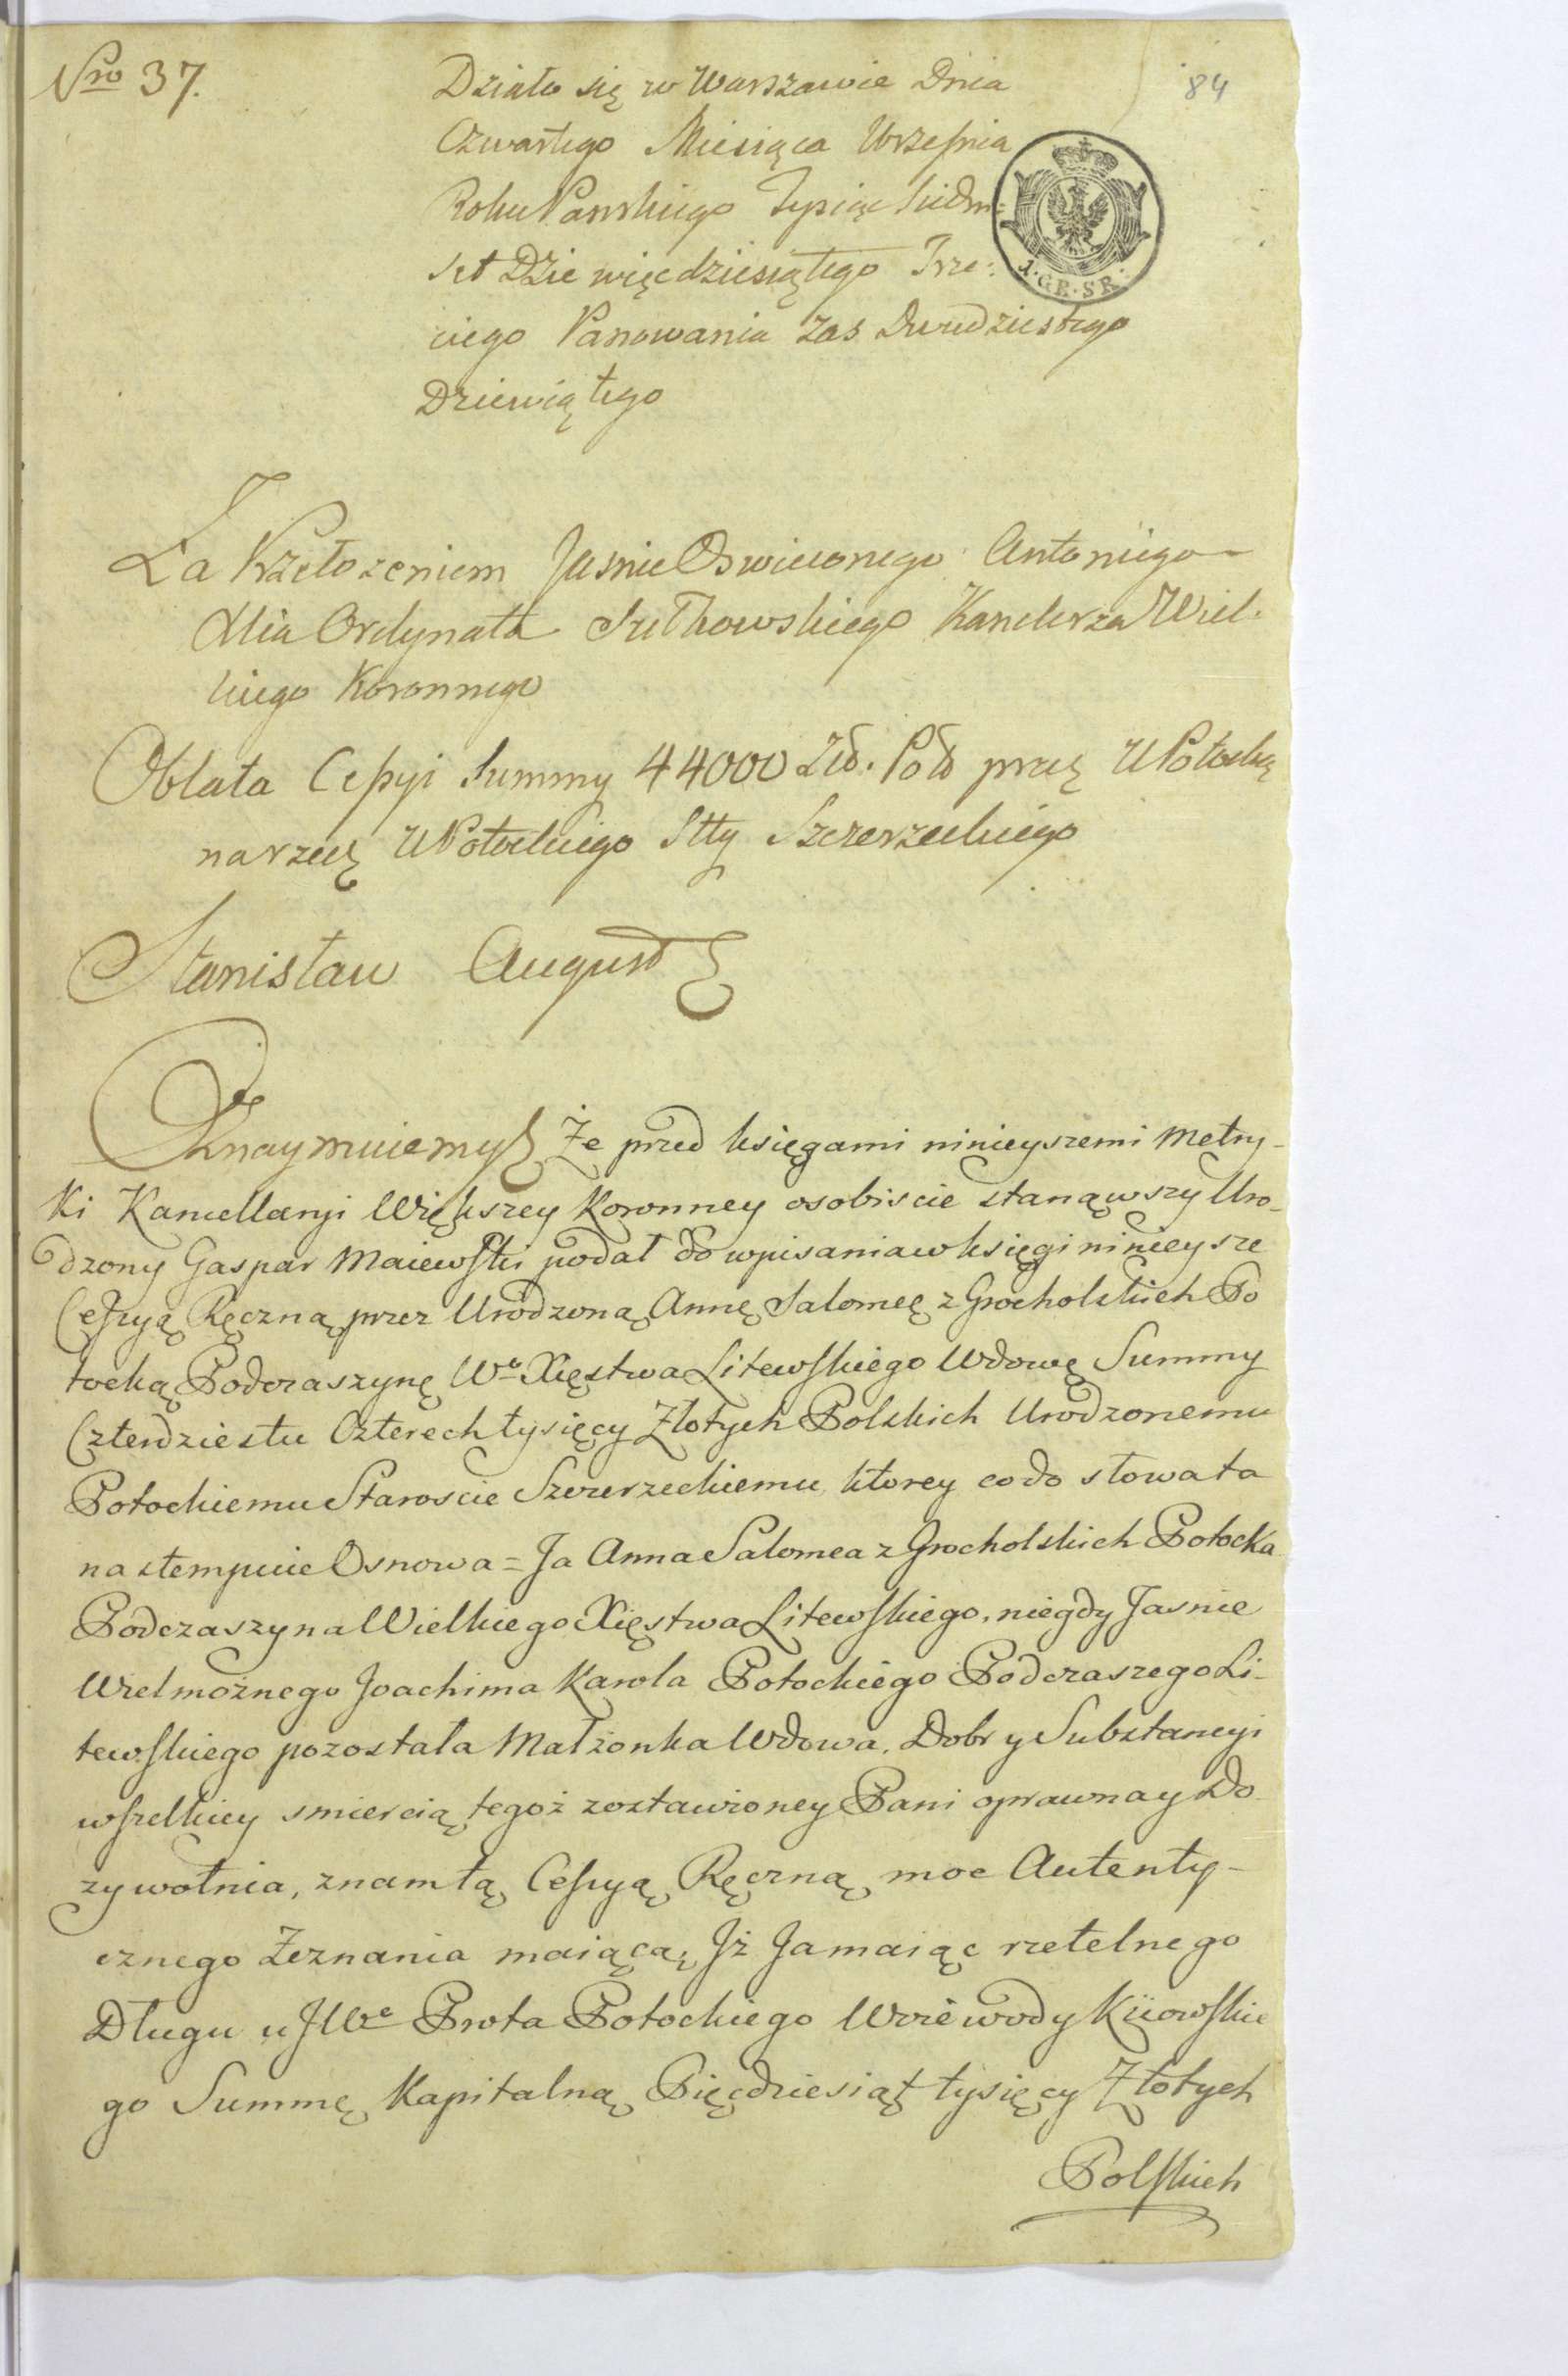 Nro 37.
84
Działo się w Warszawie Dnia
Czwartego Miesiąca Wrzesnia
Roku Panskiego Tysiąc Siedm:
set Dziewięcdziesiątego Trze:
ciego Panowania Zas Dwudziestego
Dziewiątego
1·GR·SR·
Za Przełozeniem Jasnie Oswieconego Antoniego
Xcia Ordynata Sułkowskiego Kanclerza Wiel-
kiego Koronnego
Oblata Cessyi Summy 44000 Zło. Pol przez U Potocką
na rzecz U Potockiego Stty Szczerzeckiego
Stanisław August
Oznaymuiemy Że przed księgami ninieyszemi Metry-
ki Kancellaryi Większey Koronney osobiscie stanąwszy Uro-
dzony Gaspar Maiewski podał do wpisania w księgi ninieysze
Cessyą Ręczną przez Urodzoną Annę Salomeę z Grocholskich Po
tocką Podczaszynę Wo Xięstwa Litewskiego Wdowę Summy
Czterdziestu Czterech tysięcy Złotych Polskich Urodzonemu
Potockiemu Staroscie Szczerzeckiemu, ktorey co do słowa ta
nastempuie Osnowa = Ja Anna Salomea z Grocholskich Potocka
Podczaszyna Wielkiego Xięstwa Litewskiego, niegdy Jasnie
Wielmożnego Joachima Karola Potockiego Podczaszego Li-
tewskiego pozostała Małżonka Wdowa, Dobr y Substancyi
wszelkiey smiercią tegoż zostawioney Pani oprawna y Do
zywotnia, znam tą Cessyą Ręczną moc Autenty-
cznego Zeznania maiącą, Jż Ja maiąc rzetelnego
Długu u JWo Prota Potockiego Woiewody Kiiowskie
go Summę Kapitalną Pięcdziesiąt tysięcy Złotych
Polskich